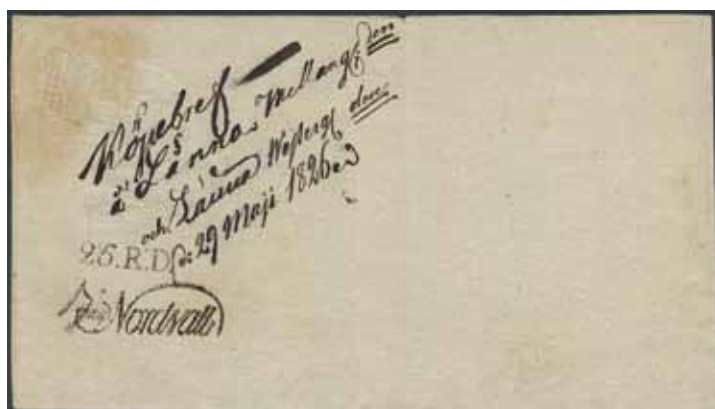 Köpebref
å Länna Mellang: den
och Länna Westerg: d
d: 29 Maji 1826
25.R.D
Nordvall